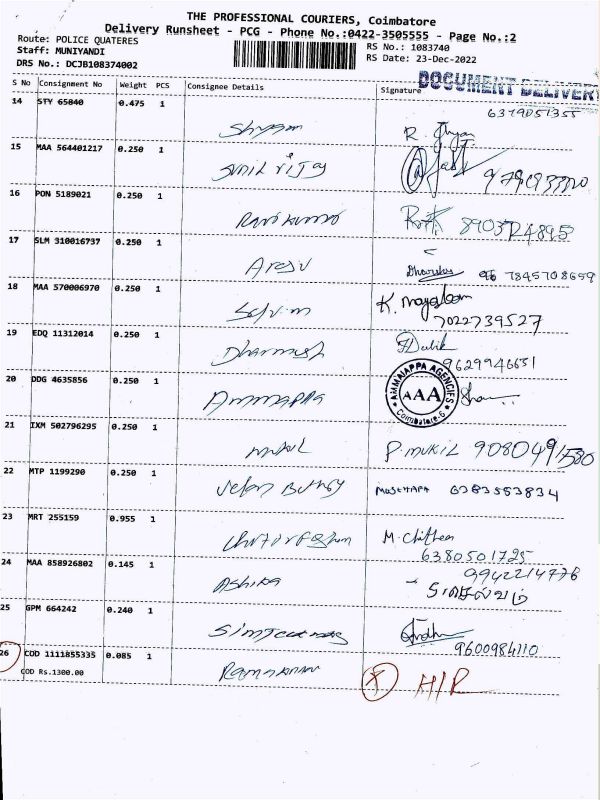 THE PROFESSIONAL COURIERS, Coimbatore
Delivery Runsheet - PCG - Phone No.:0422-3505555 - Page No.:2
Route: POLICE QUATERES
Staff: MUNIYANDI
DRS No.: DCJB108374002
RS No.: 1083740
RS Date: 23-Dec-2022
DOCUMENT DELIVERY
S No Consignment No Weight PCS Consignee Details Signature
14 STY 65840 0.475 1 Shyam 6379051355
15 MAA 564401217 0.250 1 Sunil Vijay
16 PON 5189021 0.250 1 Ravikumar
17 SLM 310016737 0.250 1 7845708659
18 MAA 570006970 0.250 1 Selvim K.
7022739527
19 EDQ 11312014 0.250 1 Dharmesh
9629946631
20 DDG 4635856 0.250 1 Ammappa
AMMAIAPPA AGENCIES
AAA
Coimbatore-6
21 IXM 502796295 0.250 1 Mukil P. MUKIL 9080491580
22 MTP 1199290 0.250 1 6383553834
23 MRT 255159 0.955 1 M.
6380501725
24 MAA 858926802 0.145 1 Ashika 9942214776
25 GPM 664242 0.240 1
9600984110
26 COD 1111855335 0.085 1
COD Rs.1300.00